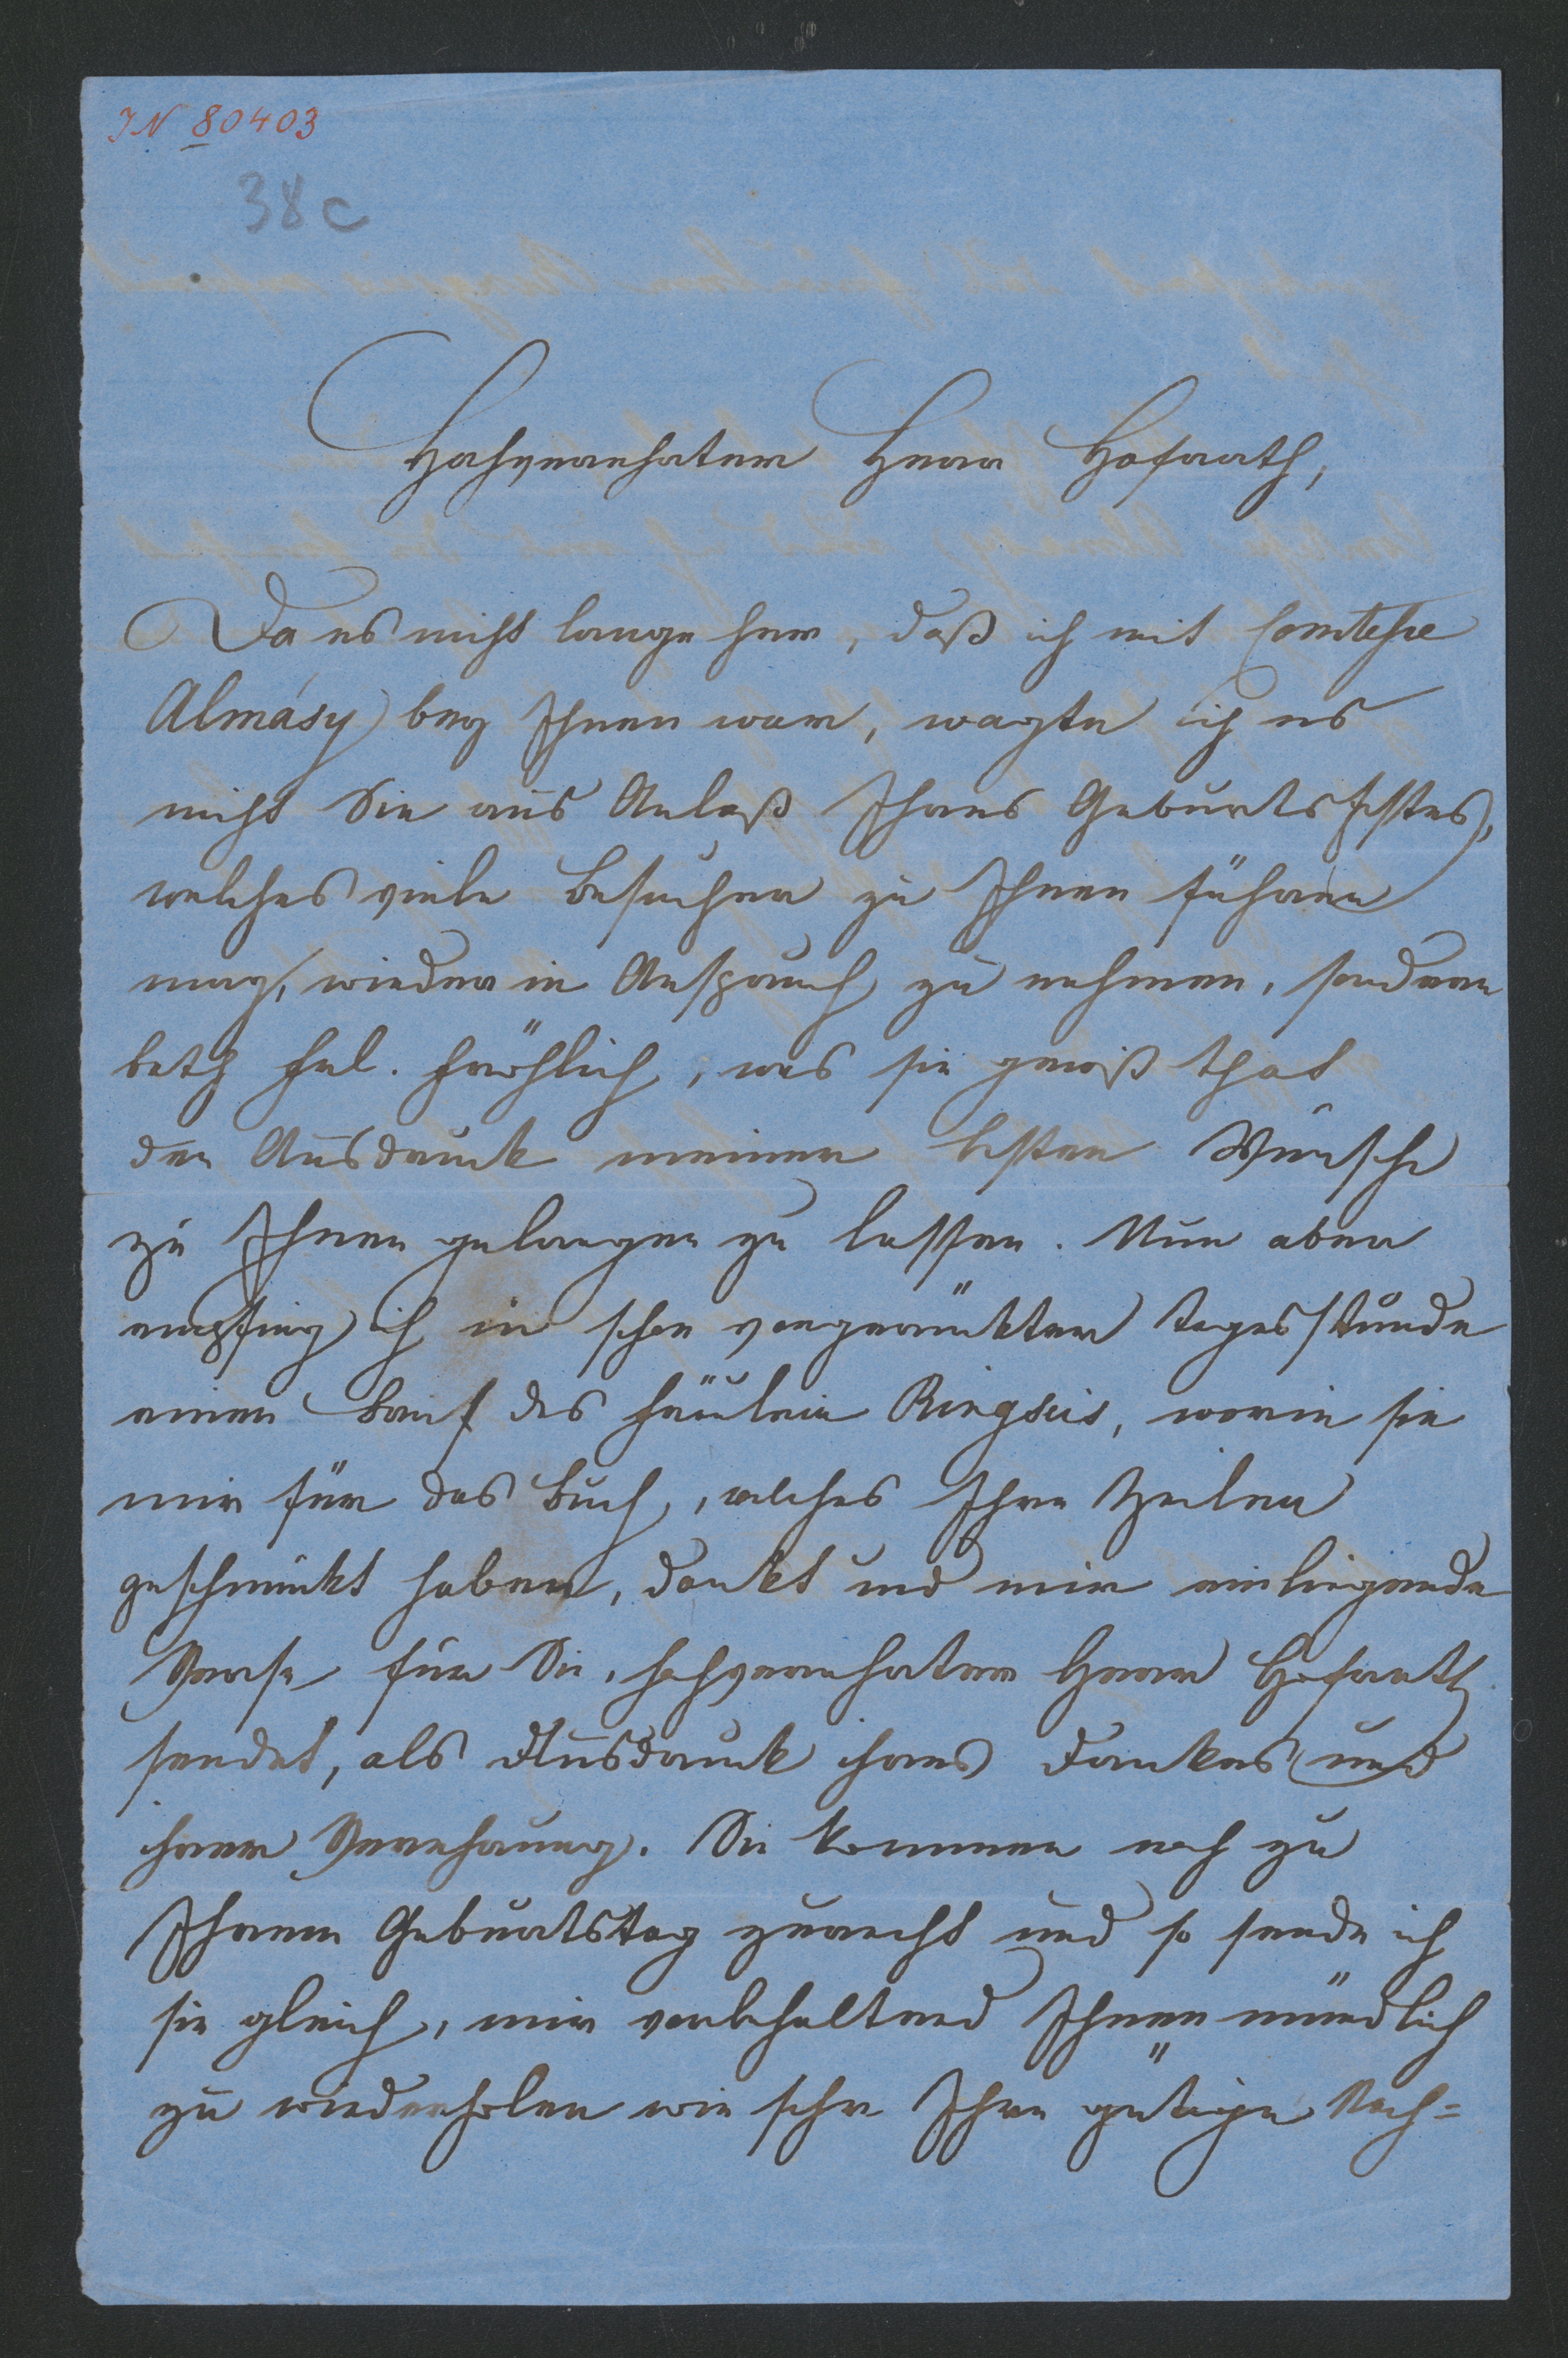 IN 80403
38c
Hochverehrter Herr Hofrath,
Da es nicht lange her, daß ich mit Comtesse
Almásy bey Ihnen war, wagte ich es
nicht Sie aus Anlaß Ihres Geburtsfestes,
welches viele Besucher zu Ihnen führen
mag, wieder in Anspruch zu nehmen, sondern
bath Frl. Fröhlich, was sie gewiß that
den Ausdruck meiner besten Wünsche
zu Ihnen gelangen zu lassen. Nun aber
empfing ich in schon vorgerückter Tagesstunde
einen Brief des Fräulein Ringseis, worin sie
mir für das Buch, welches Ihre Zeilen
geschmückt haben, dankt und mir einliegende
Verse für Sie, hochverehrter Herr Hofrath
sendet, als Ausdruck ihres Dankes und
ihrer Verehrung. Sie kommen noch zu
Ihrem Geburtstag zurecht und so sende ich
sie gleich, mir vorbehaltend Ihnen mündlich
zu wiederholen wie sehr Ihre gütige Nach=